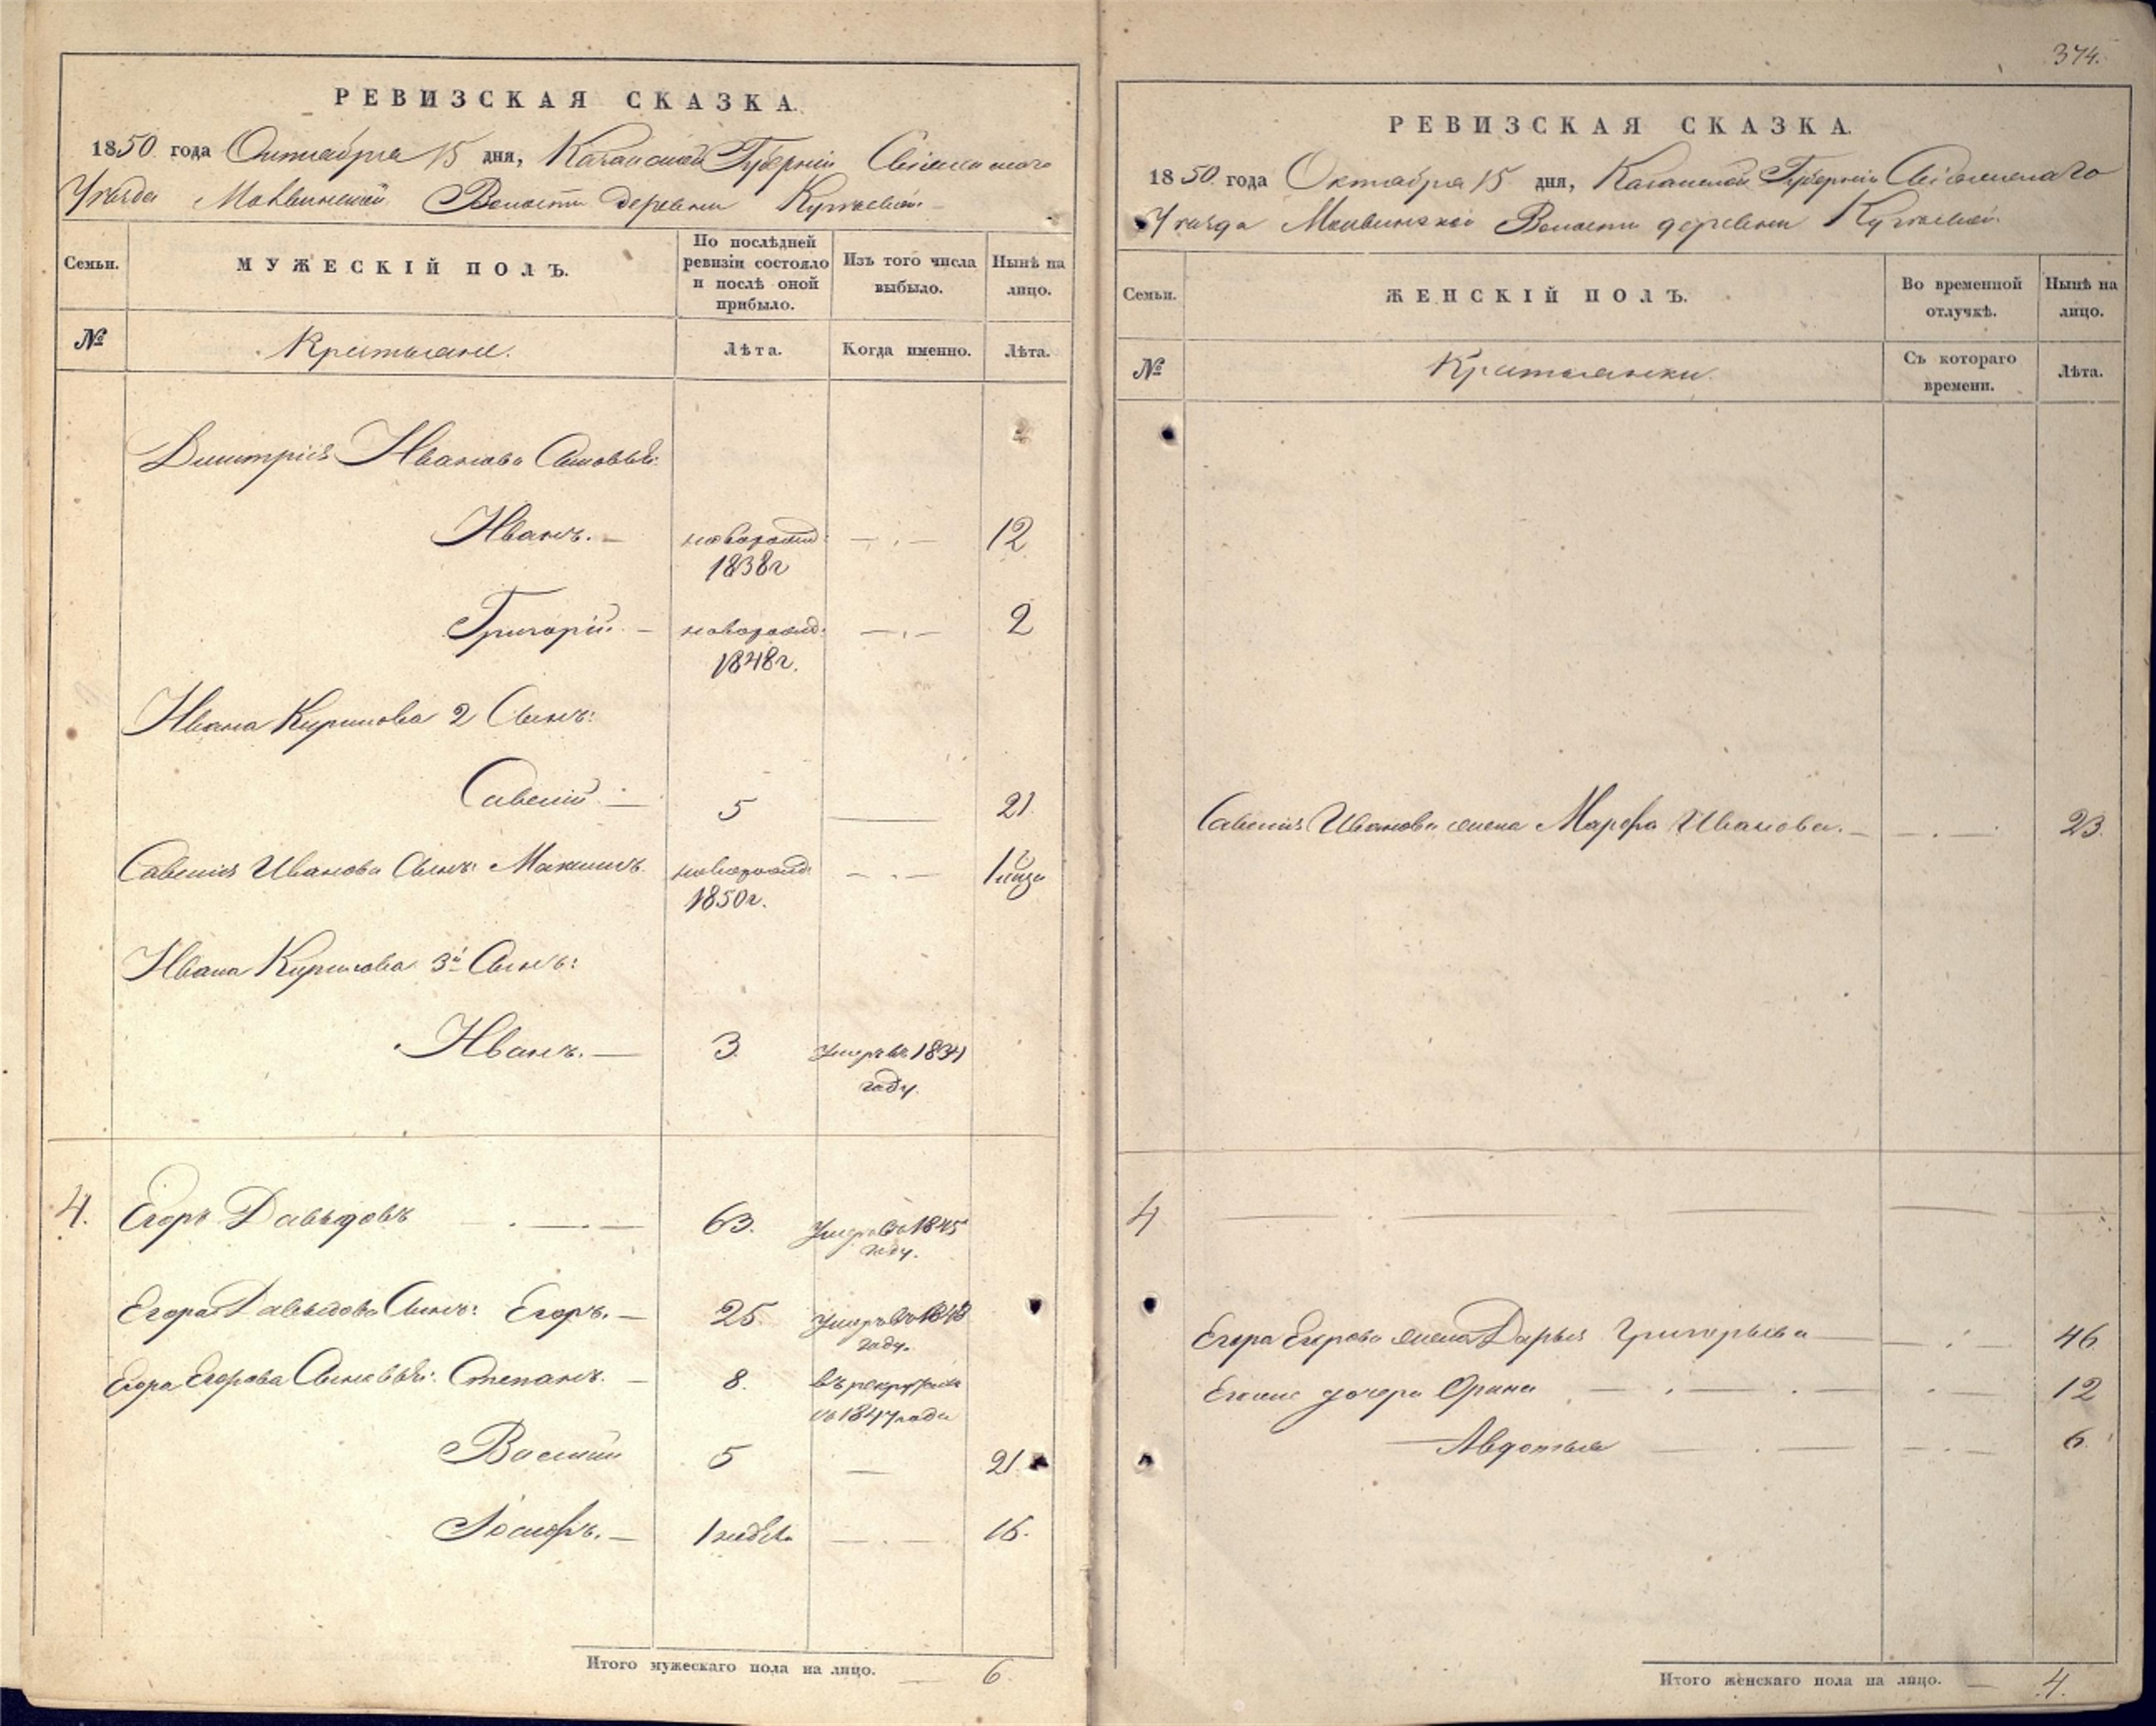 РЕВИЗСКАЯ СКАЗКА.
1850 года Октября 15 дня, Казанской Губерніи Свіяжскаго
Уѣзда Волости деревни
Семьи.
МУЖЕСКІЙ ПОЛЪ.
По послѣдней ревизіи состояло и послѣ оной прибыло.
Изъ того числа выбыло.
Нынѣ на лицо.
№
Крестьяне.
Лѣта.
Когда именно.
Лѣта.
Дмитрія Иванова Сыновья:
Иванъ. — новорожд: — . — 12
1838г
Григорій — новорожд: — . — 2
1848г.
Ивана Кирилова 2 Сынъ:
Савелій — 5 — 21
Савелія Иванова Сынъ: Максимъ новорожд: — . — 1
1850г.
Ивана Кирилова 3й Сынъ:
Иванъ. — 3. умеръ въ 1834
году.
4. Егоръ Давыдовъ — . — . — 63. Умеръ въ 1845
году.
Егора Давыдова Сынъ: Егоръ. — 25 умеръ въ 1848
году.
Егора Егорова Сыновья: Степанъ. — 8. въ рекруты
въ 1847 году
Василій 5 — 21.
Іосифъ. — 1 недѣл. — . — 16.
Итого мужескаго пола на лицо. — 6.
374.
РЕВИЗСКАЯ СКАЗКА.
1850 года Октября 15 дня, Казанской Губерніи Свіяжскаго
Уѣзда Волости деревни
Семьи.
ЖЕНСКІЙ ПОЛЪ.
Во временной отлучкѣ.
Нынѣ на лицо.
№
Крестьянки
Съ котораго времени.
Лѣта.
Савелія Иванова жена Марфа Иванова. — — . — 23.
4
Егора Егорова жена Дарья Григорьева — — . — 46
Егоże дочери Орина — . — . — . 12
Авдотья — . — — . — 6.
Итого женскаго пола на лицо. — 4.